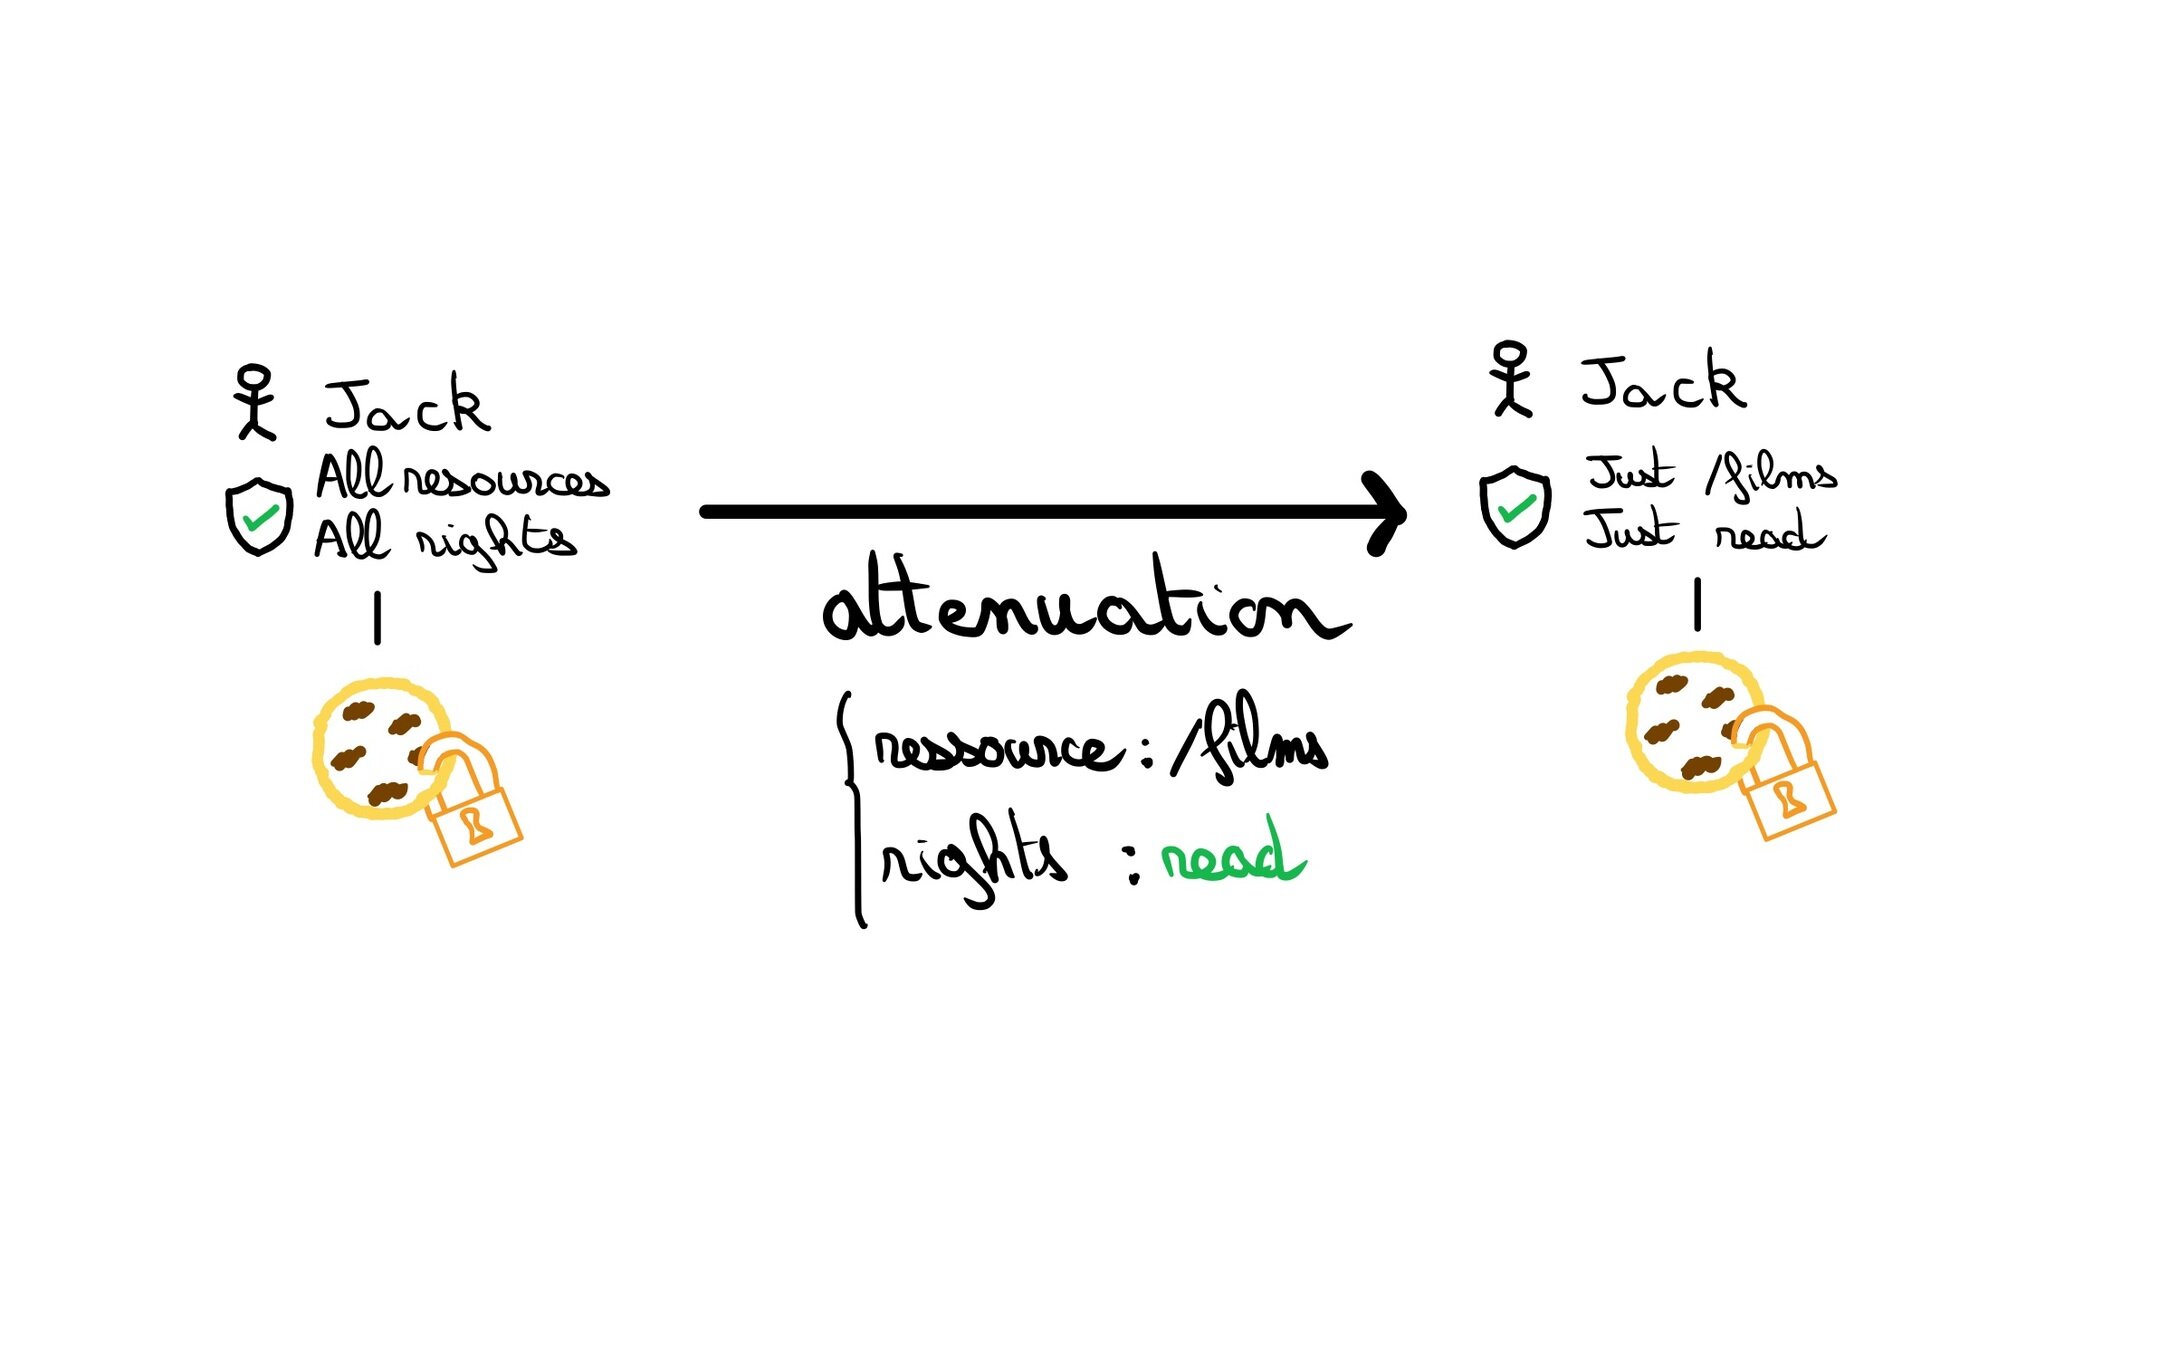 Jack
All resources
All rights
attenuation
ressource : /films
rights : read
Jack
Just /films
Just read